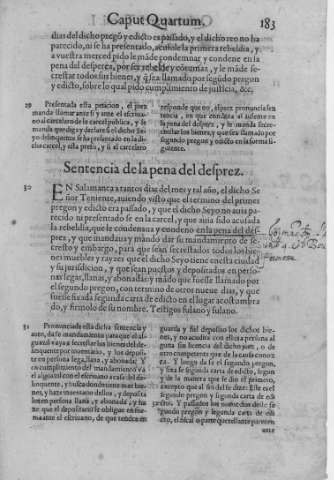 Caput Quartum. 183
dias del dicho pregõ y edicto es passado, y el dicho reo no ha
parecido, ni se ha presentado, acusole la primera rebeldia, y
a vuestra merced pido le mãde condemnar y condene en la
pena del desprez, por ser rebelde y contumas, y le mãde se-
crestar todos sus bienes, y q̃ sea llamado por segũdo pregon
y edicto, sobre lo qual pido cumplimiento de justicia, &c.
29 Presentada esta peticion, el juez
manda llamar ante si y ante el escriua-
no al carcelero de la carcel publica, y le
manda que diga y declare si el dicho Se-
yo delinquente se ha presentado en la di-
cha carcel, y esta preso, y si el carcelero
responde que no, el juez pronuncia sen
tencia, en que condena al ausente en
la pena del desprez, y le manda secre-
star los bienes, y que sea llamado por
segundo pregon y edicto en la forma si-
guiente.
Sentencia de la pena del desprez.
30 EN Salamanca a tantos dias del mes y tal año, el dicho Se
ñor Teniente, auiendo visto que el termino del primer
pregon y edicto era passado, y que el dicho Seyo no auia pa-
recido ni presentado se en la carcel, y que auia sido acusada
la rebeldia, que le condenaua y condeno en la pena del des-
prez, y que mandaua y mando dar su mandamiento de se-
cresto y embargo, para que sean secrestados todos los bie-
nes muebles y rayzes que el dicho Seyo tiene en esta ciudad
y su jurisdicion, y que sean puestos y depositados en perso-
nas legas, llanas, y abonadas y mãdo que fuesse llamado por
el segundo pregon, con termino de otros nueue dias, y que
fuesse fixada segunda carta de edicto en el lugar acostumbra
do, y firmolo de su nombre. Testigos fulano y sulano.
31 Pronunciada esta dicha sentencia y
auto, dase mandamiento para que el al-
guazil vaya a secrestar los bienes del de-
linquente por inuentario, y los deposi-
te en persona lega, llana, y abonada: Y
en cumplimiento del mandamiento va
el alguazil con el escriuano a casa del de-
linquente, y busca donde tiene mas bie-
nes, y haze inuentario dellos, y deposita
los en persona llana, y abonada, y ha-
ze que el depositario se obligue en for-
ma ante el escriuano, de que tendra en
guarda y fiel deposito los dichos bie-
nes, y no acudira con ellos a persona al
guna sin licencia del dicho juez, o de
otro competente que de la causa conoz
ca. Y luego da se el segundo pregon,
y fixa se segunda carta de edicto, segun
y de la manera que se dio el primero,
excepto que al fin del se dize: Este es el
segundo pregon y segunda carta de edi-
cto. Y passados los nueue dias deste se-
gundo pregon y segunda carta de edi-
cto, el fiscal o parte querellante parecen
ante